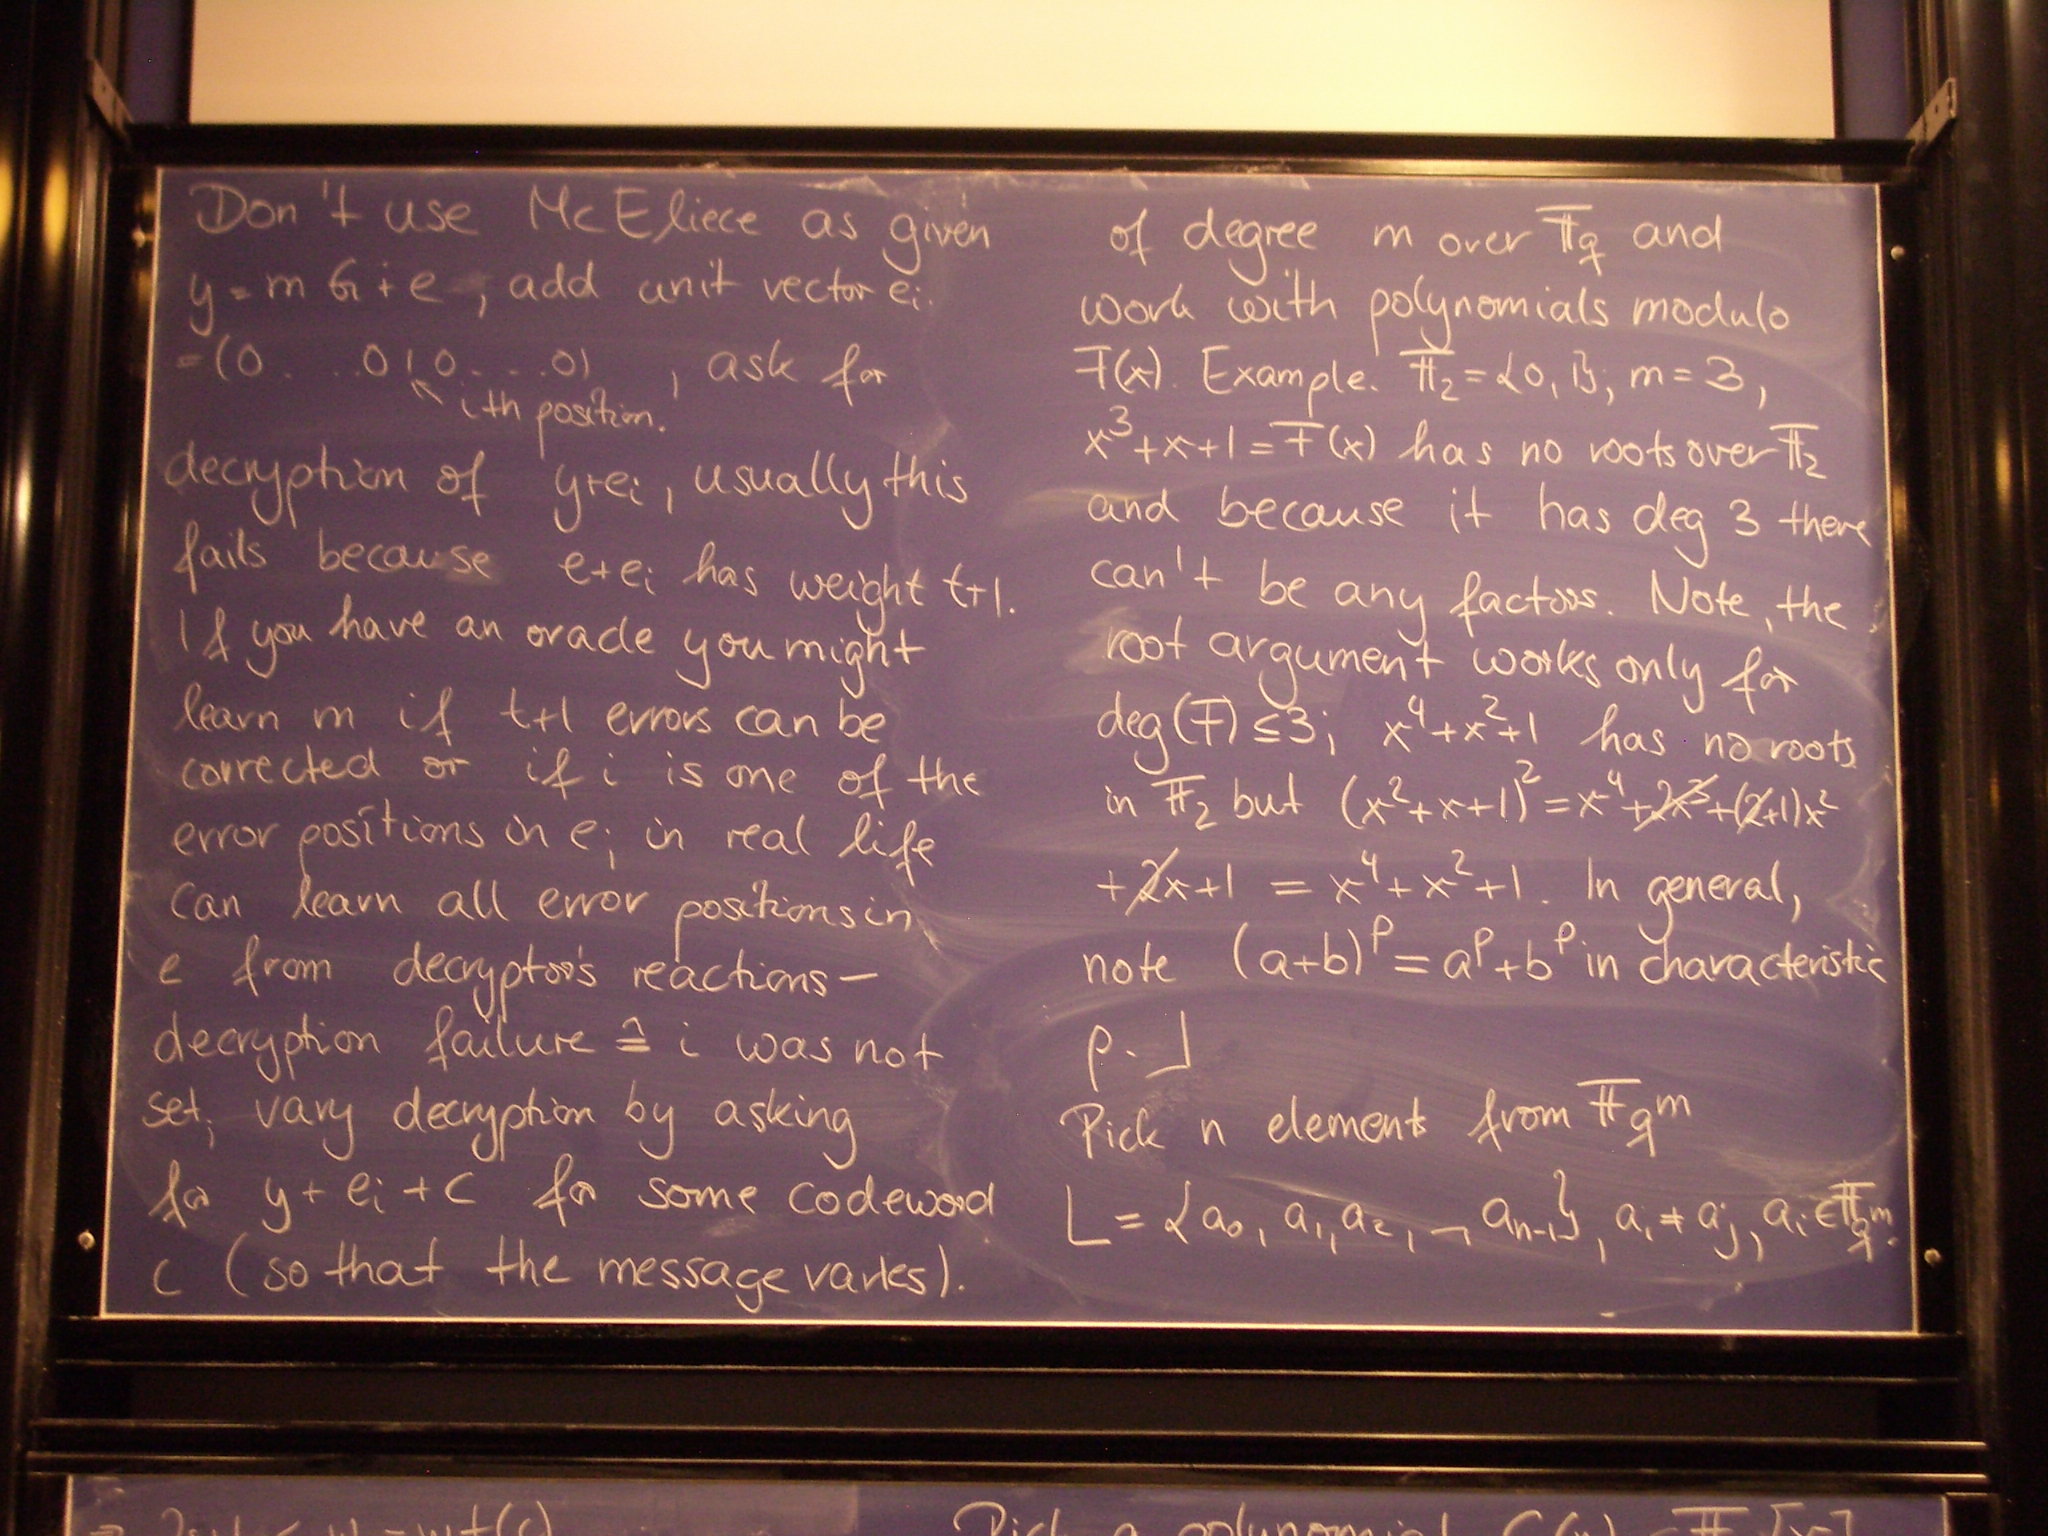 Don't use McEliece as given
y = m G + e , add unit vector ei.
= (0 . . . 0 1 0 . . . 0) , ask for
↖ ith position.
decryption of y+ei, usually this
fails because e+ei has weight t+1.
If you have an oracle you might
learn m if t+1 errors can be
corrected or if i is one of the
error positions in e; in real life
can learn all error positions in
e from decryptor's reactions –
decryption failure ≙ i was not
set; vary decryption by asking
for y + ei + c for some codeword
c (so that the message varies).
of degree m over 𝔽q and
work with polynomials modulo
F(x). Example. 𝔽2 = {0,1}, m = 3,
x³+x+1 = F(x) has no roots over 𝔽2
and because it has deg 3 there
can't be any factors. Note, the
root argument works only for
deg(F) ≤ 3; x⁴+x²+1 has no roots
in 𝔽2 but (x²+x+1)² = x⁴+2x³+(2+1)x²
+2x+1 = x⁴+x²+1. In general,
note (a+b)^p = a^p+b^p in characteristic
p. ⌋
Pick n elements from 𝔽q^m
L = {a0, a1, a2, –, an-1}, ai ≠ aj, ai ∈ 𝔽q^m.
Pick a polynomial